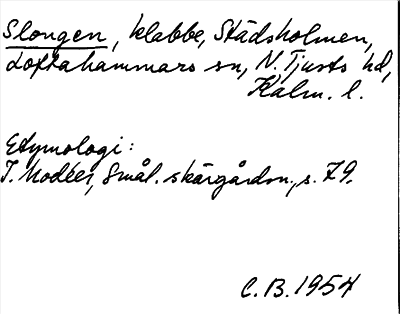 Slongen, klabbe, Städsholmen,
Loftahammars sn, N. Tjusts hd,
Kalm. l.
Etymologi:
I. Modéer, Smål. skärgårdsn., s. 79.
C. B. 1954